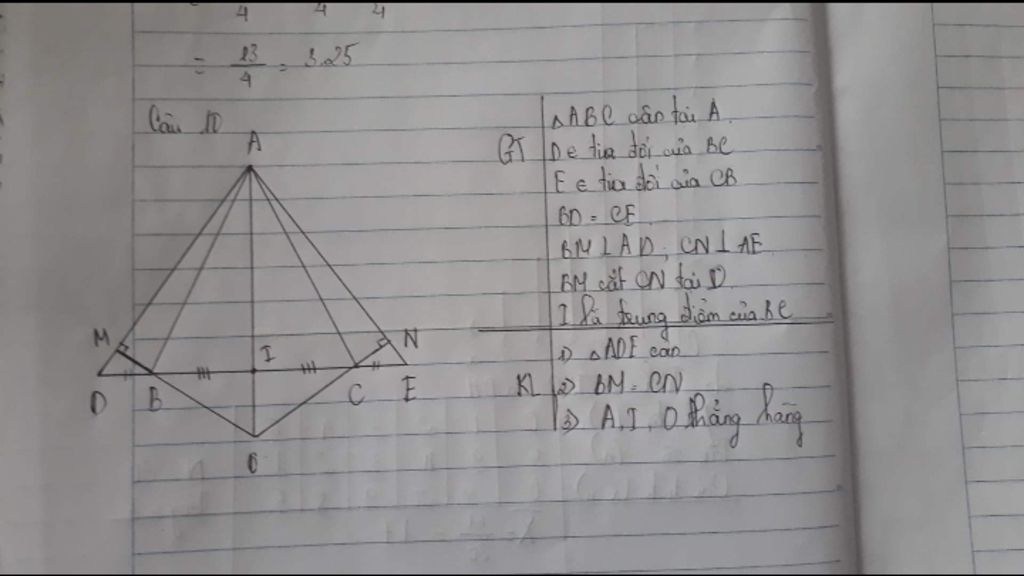 4 4 4
= 13/4 = 3.25
Câu 10
A
M
N
I
D B C E
O
GT
△ABC cân tại A.
D ∈ tia đối của BC
E ∈ tia đối của CB
BD = CE
BM ⊥ AD, CN ⊥ AE
BM cắt CN tại O.
I là trung điểm của BC
KL
1) △ADE cân
2) BM = CN
3) A, I, O thẳng hàng